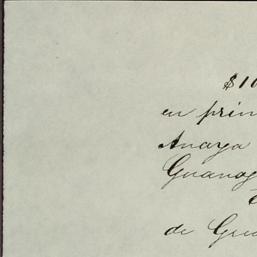 $10
en prim
Anaya
Guanaj
de Gu